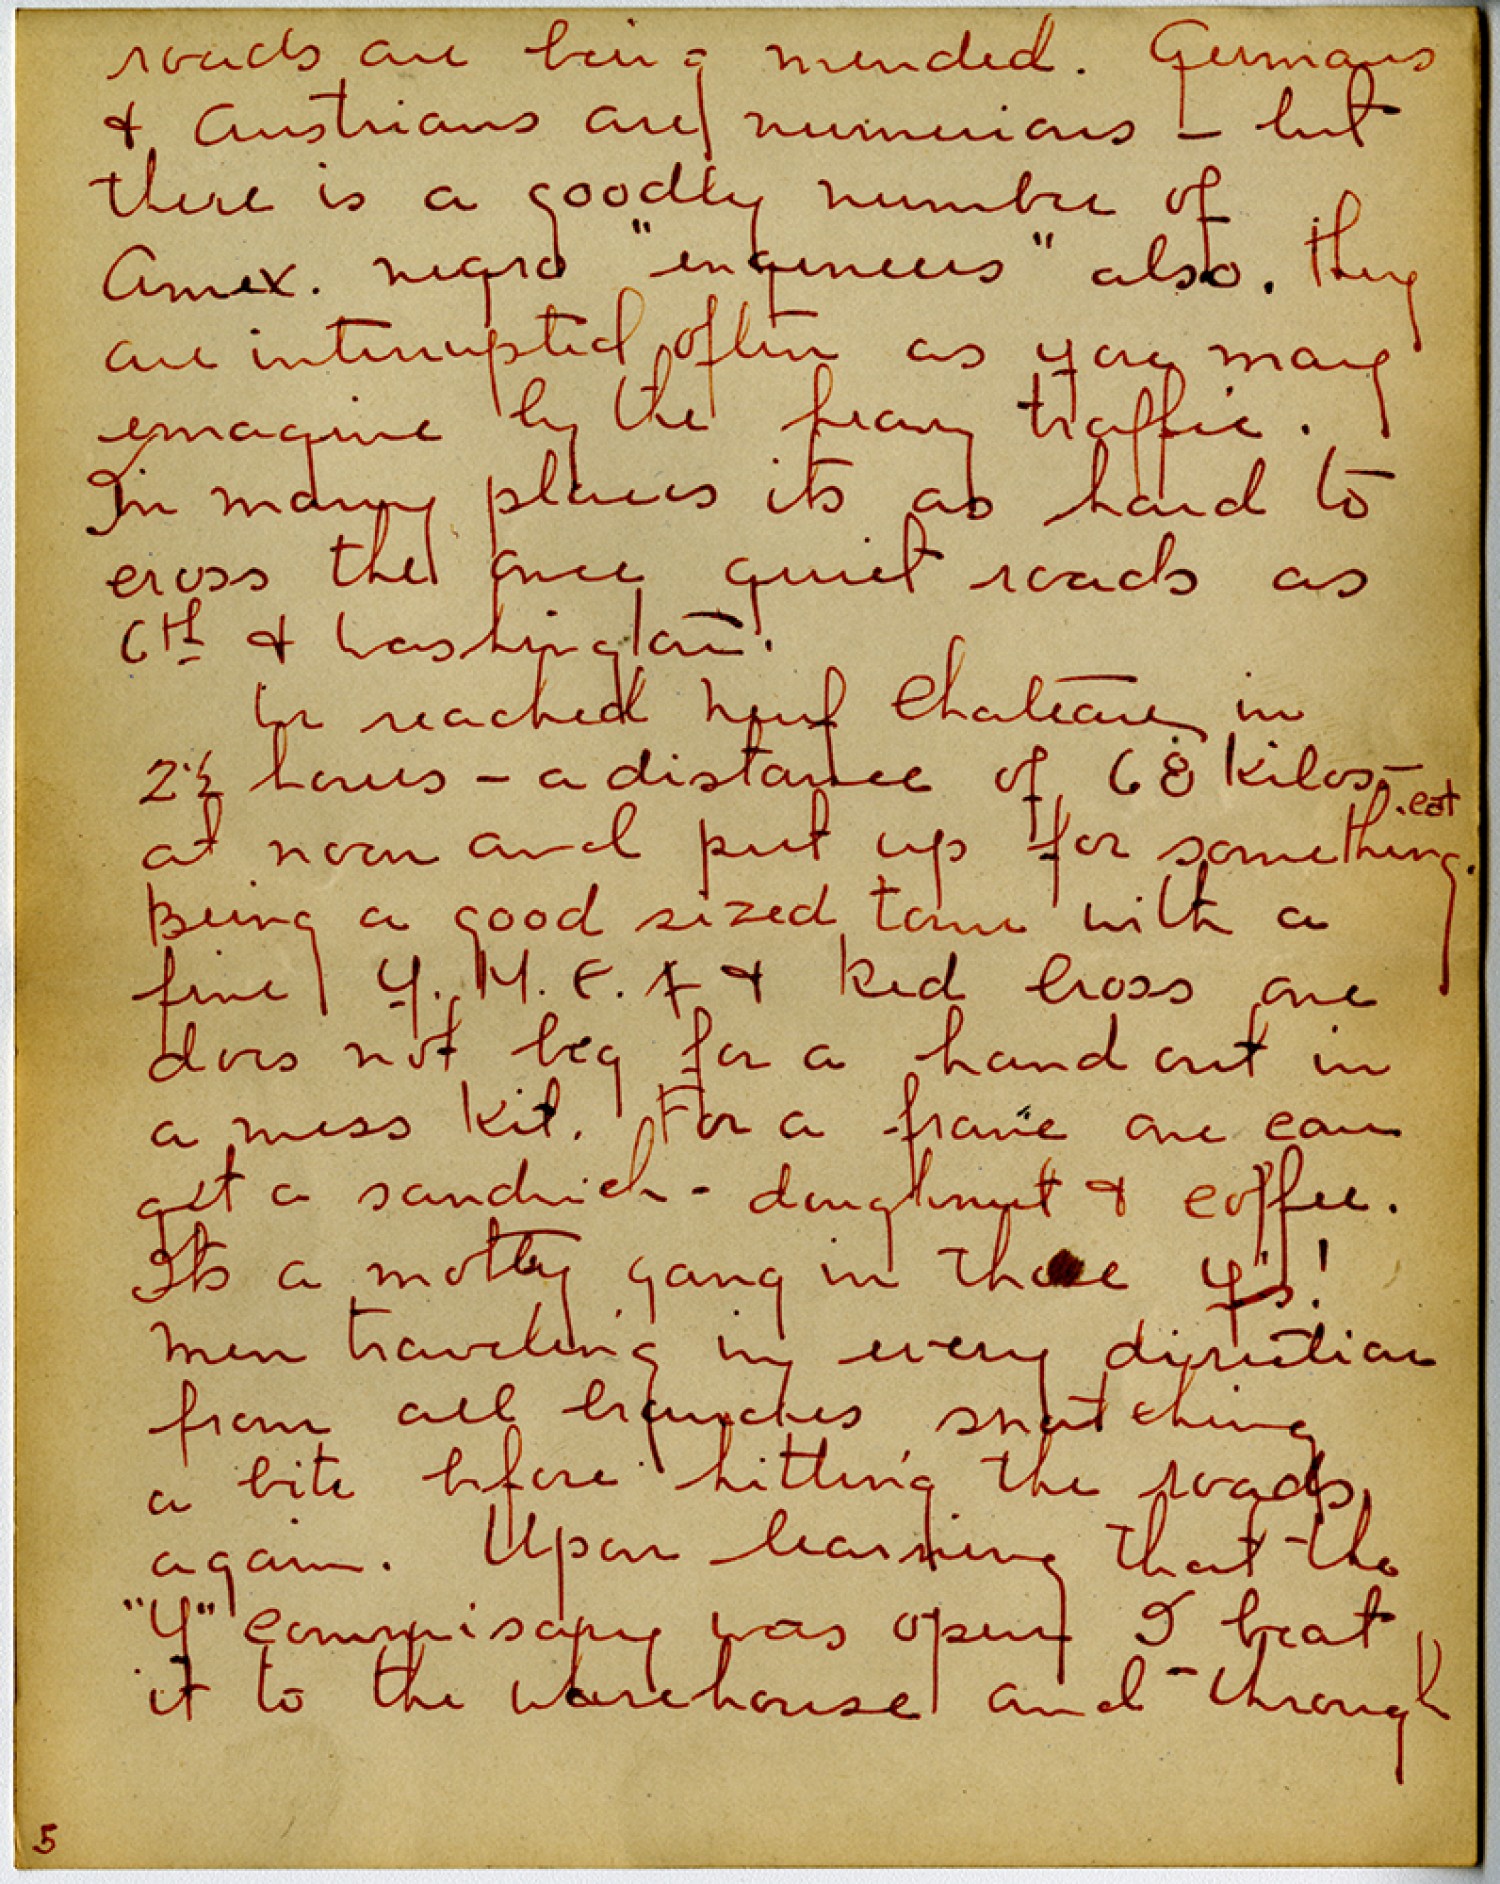 roads are being mended. Germans
& Austrians are numerious – but
there is a goodly number of
Amex. negro "engineers" also. They
are interrupted often as you may
emagine by the heavy traffic.
In many places its as hard to
cross the once quiet roads as
6th & Washington.
We reached Neuf Chateau in
2 1/2 hours – a distance of 68 Kilos –
at noon and put up for something. eat
Being a good sized town with a
fine Y.M.C.A & Red Cross one
does not beg for a hand out in
a mess kit. For a franc one can
get a sandwich - doughnut & coffee.
Its a motley gang in those Y's!
men traveling in every direction
from all branches snatching
a bite before hitting the roads
again. Upon learning that the
"Y" commisary was open I beat
it to the warehouse and through
5